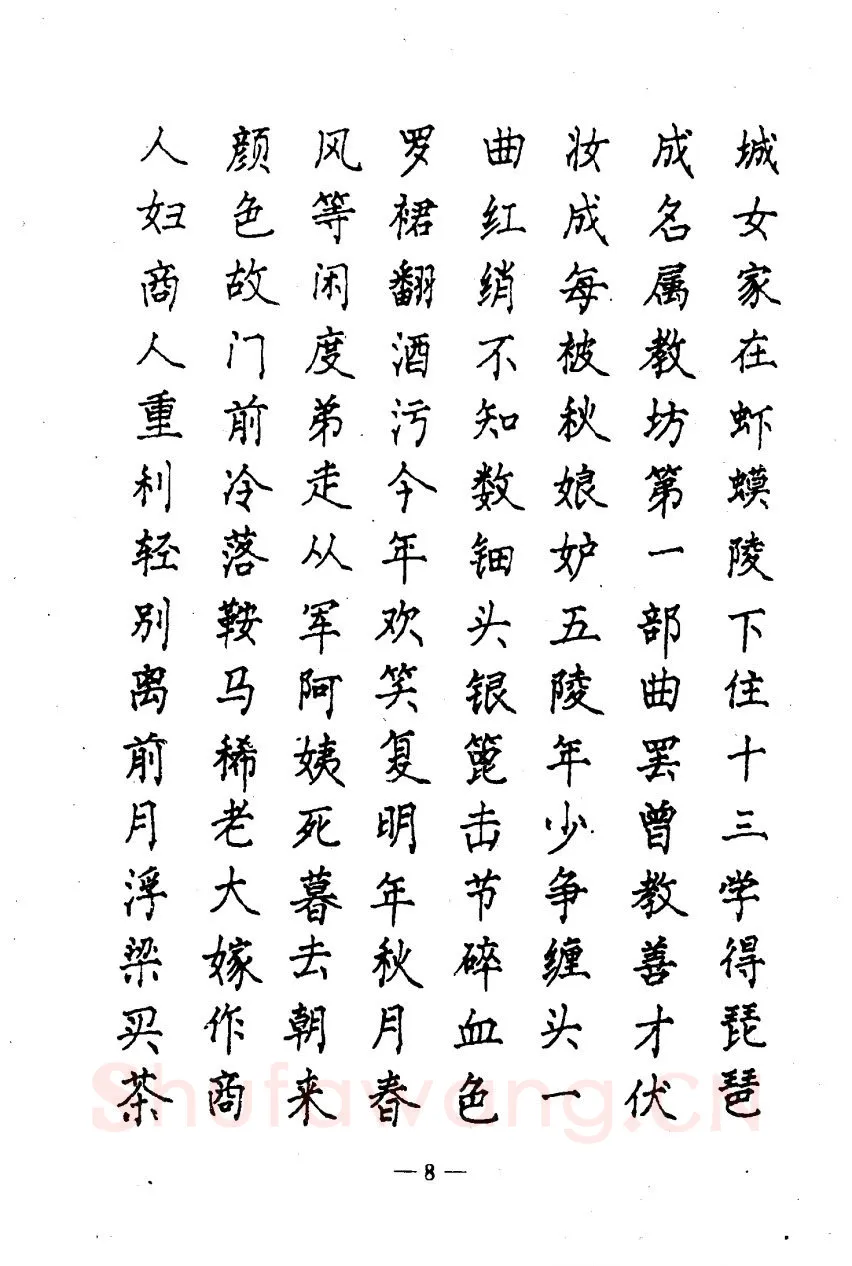 城女家在虾蟆陵下住十三学得琵琶
成名属教坊第一部曲罢曾教善才伏
妆成每被秋娘妒五陵年少争缠头一
曲红绡不知数钿头银篦击节碎血色
罗裙翻酒污今年欢笑复明年秋月春
风等闲度弟走从军阿姨死暮去朝来
颜色故门前冷落鞍马稀老大嫁作商
人妇商人重利轻别离前月浮梁买茶
Shufawang.CN
— 8 —